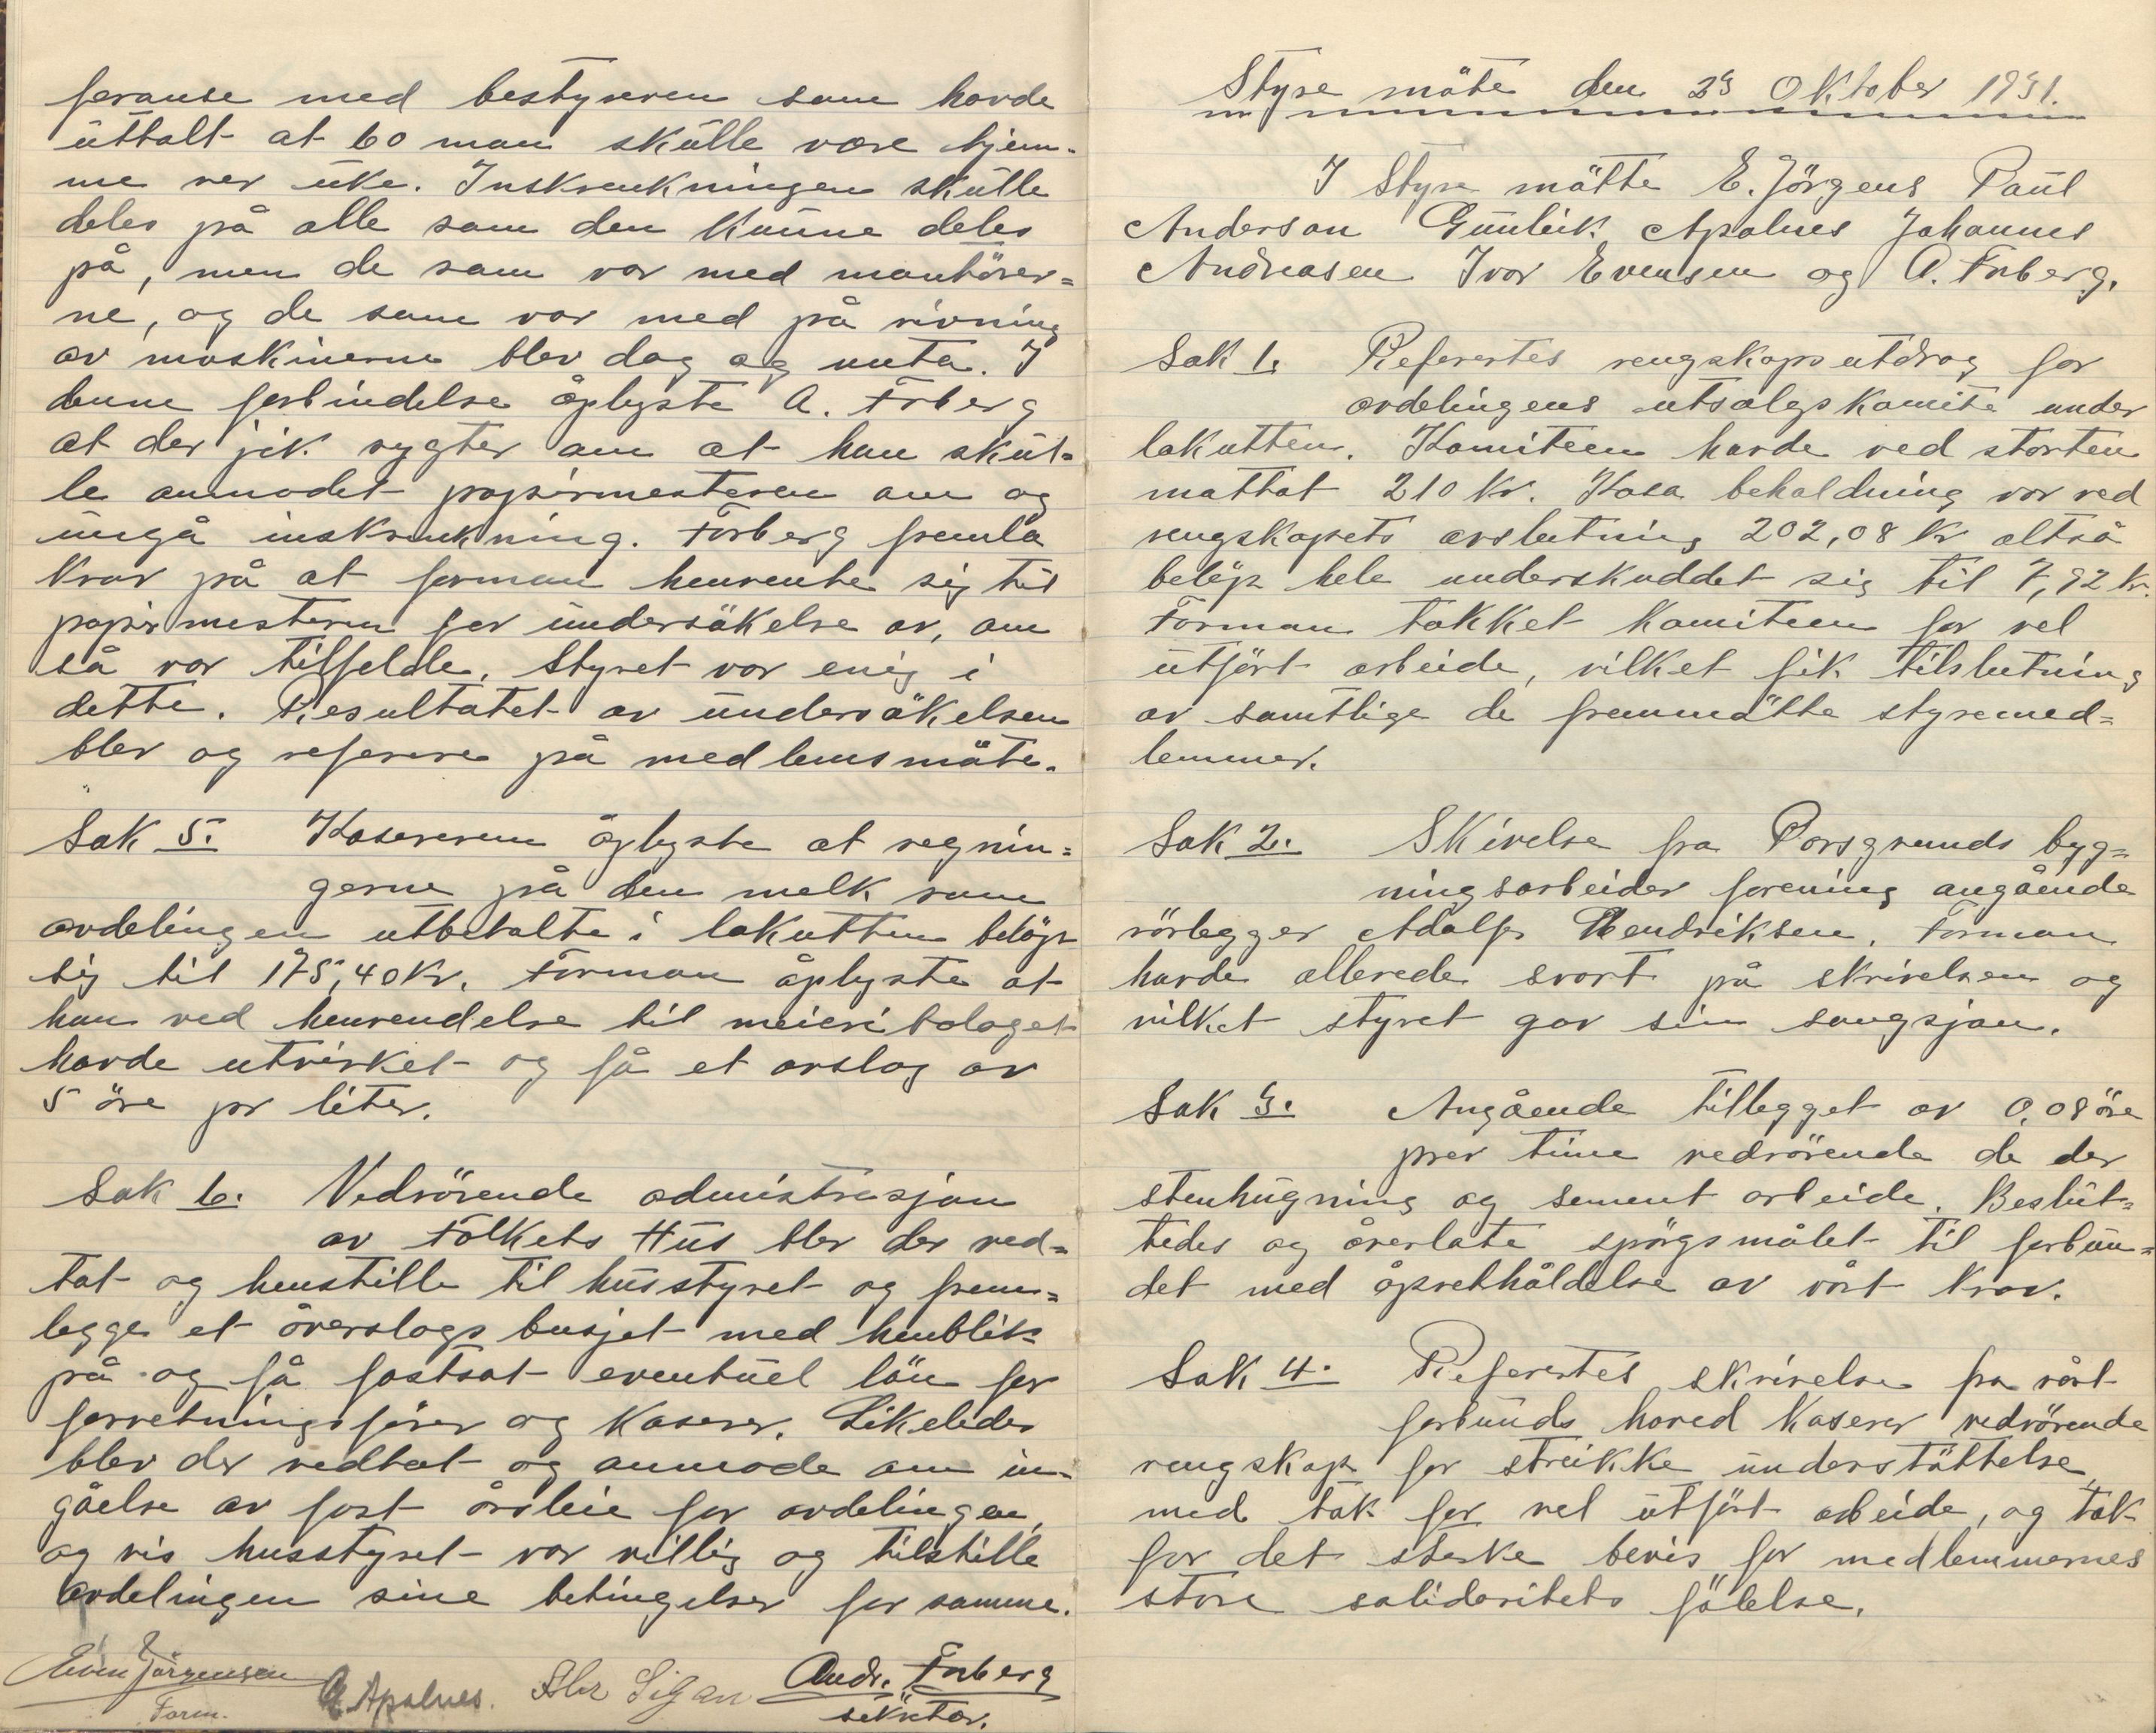 feranse med bestyreren som havde
üttalt at 60 man skülle være hjem-
me ver üke. Inskrenkningen skülle
deles på alle som den künne deles
på, men de som var med mantörer=
ne, og de som var med på rivning
av maskinerne blev dag og nata. I
denne forbindelse åplyste A. Förberg
at der jik rygter om at han skül=
le anmodet papirmesteren om og
üngå inskrenkning. Förberg fremla
krav på at forman henvente sig til
papirmesteren for ündersökelse av, om
så var tilfelde. Styret var enig i
dette. Resultatet av ündersökelsen
blev og referere på medlemsmöte.
Sak 5. Kasereren åplyste at regnin=
gerne på den melk som
avdelingen utbetalte i lakutten belöp
sig til 175,40 Kr. Forman åplyste at
han ved henvendelse til meieribolaget
havde utvirket og få et avslag av
5 öre pr liter.
Sak 6. Vedrörende admistrasjon
av Fålkets Hüs blev der ved=
tat og henstille til hüsstyret og frem=
legge et åverslags busjet med henblik
på og få fastsat eventüel lön for
forretningsförer og Kaserer. Likeledes
blev der vedtat og anmode om in=
gåelse av fast årsleie for avdelingen,
og vis husstyret var villig og tilstille
avdelingen sine betingelser for samme.
Even Jörgensen
Form.
G. Apalnes.
Andr. Förberg
sekretær.
Styre möte den 23 Oktober 1931.
I Styre mötte E. Jörgens Paül
Anderson Günleik Apalnes Johannes
Andreasen Ivar Evensen og A. Förberg.
Sak 1. Refererstes rengskapsutdrag for
avdelingens utsalgskomite under
lakutten. Komiteen havde ved starten
mattat 210 kr. Kasa behaldning var ved
rengskapets avslutning 202,08 kr altså
belöp hele underskuddet sig til 7,92 kr.
Forman takket komiteen for vel
ütfört arbeide, vilket fik tilslutning
av samtlige de fremmötte styremed=
lemmer.
Sak 2. Skivelse fra Porsgrunds byg=
ningsarbeider forening angående
rörlegger Adolf Hendriksen. Forman
havde allerede svart på skrivelsen og
vilket styret gav sin sangsjon.
Sak 3. Angående tillegget av 0,08 öre
prer time vedrörende de der
stenhügning og sement arbeide. Beslüt=
tedes og åverlate spörgsmålet til forbün=
det med åpretthåldelse av vårt krav.
Sak 4. Referertes skrivelse fra vårt
forbünds hoved Kaserer vedrörende
rengskap for streikke ünderstöttelse,
med tak for vel ütfört arbeide, og tak
for det sterke bevis for medlemmernes
store salidaritets fölelse.